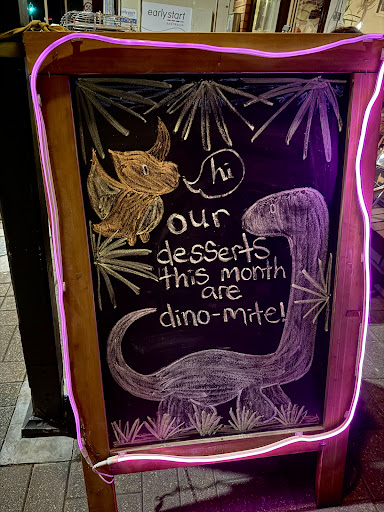 earlystart
hi
our
desserts
this month
are
dino-mite!